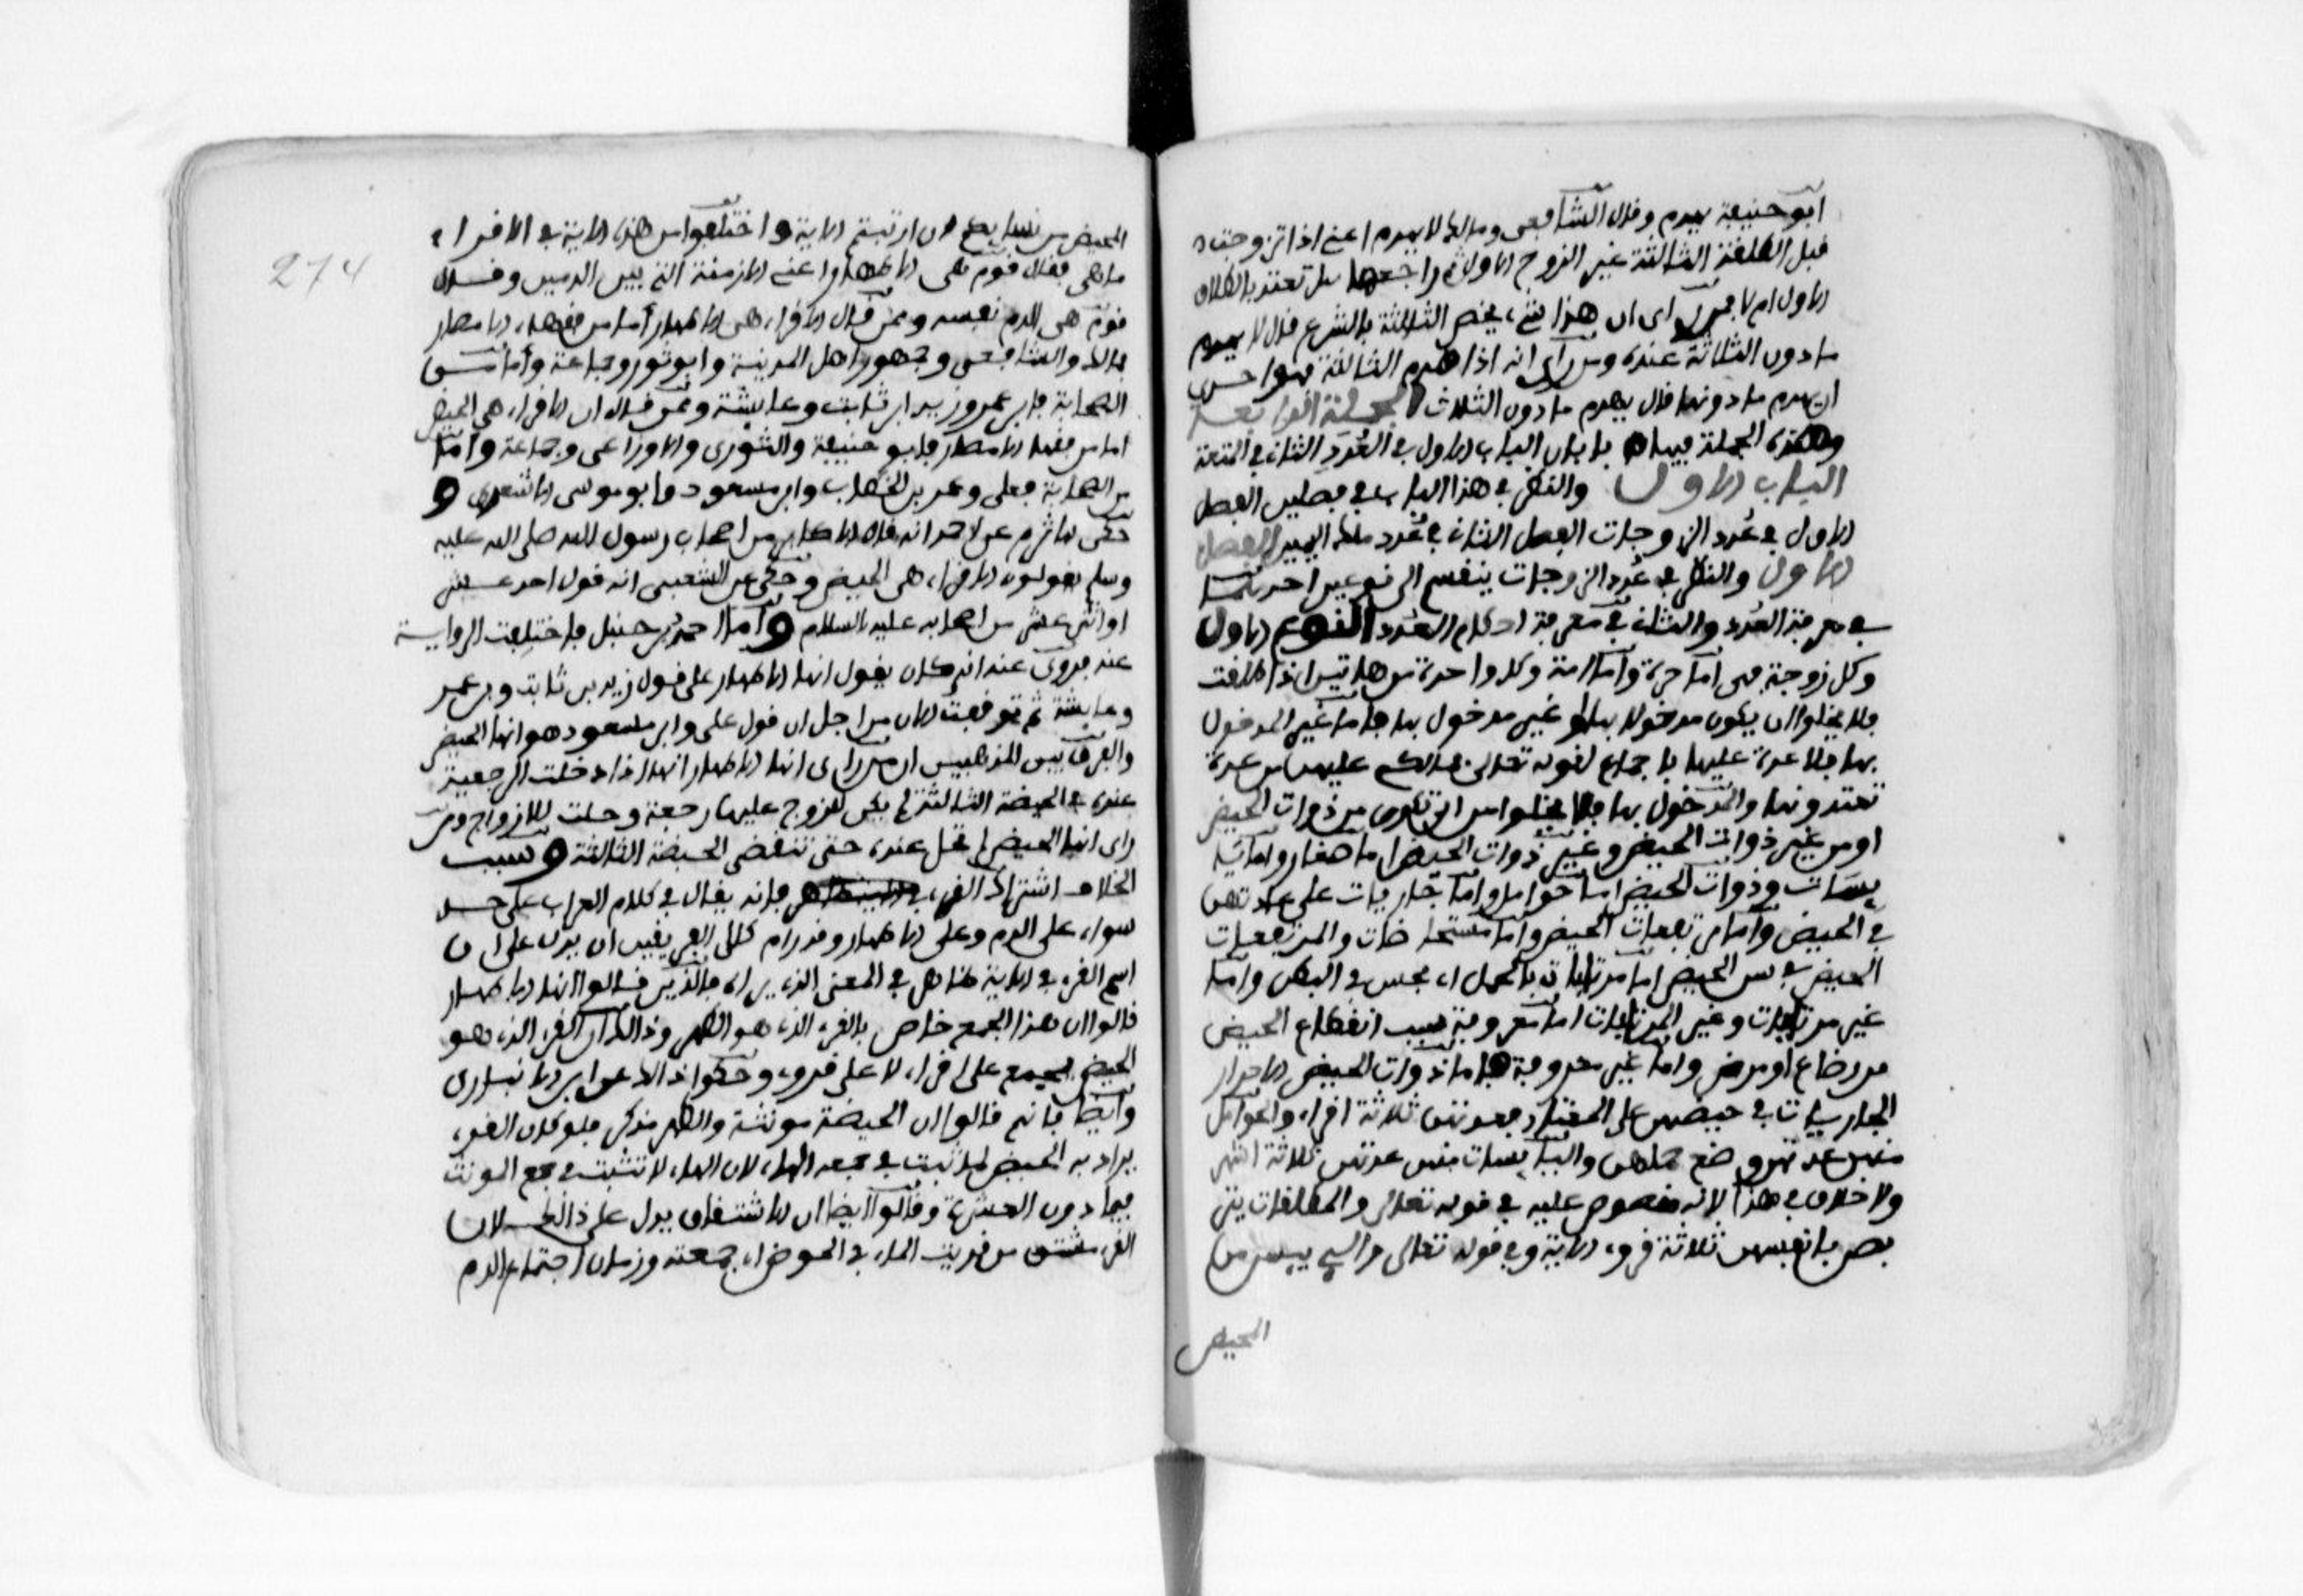 ابو حنيفة يهدم وقال الشافعي ومالك لا يهدم اعني اذا تزوجت
قبل الطلقة الثالثة غير الزوج الاول ثم راجعها هل تعتد بالطلاق
الاول ام لا فمن راى ان هذا شيء يخص الثالثة بالشرع قال لا يهدم
ما دون الثالثة عنده ومن راى انه اذا هدم الثالثة فهو احرى
ان يهدم ما دونها قال يهدم ما دون الثلاث الجملة الرابعة
وهذه الجملة فيها بابان الباب الاول في العدد الثاني في المتعة
الباب الاول والنظر في هذا الباب في فصلين الفصل
الاول في عدد الزوجات الفصل الثاني في عدد ملك اليمين الفصل
الاول والنظر في عدد الزوجات ينقسم الى نوعين احدهما
في معرفة العدد والثاني في معرفة احكام العدد النوع الاول
وكل زوجة فهي اما حرة واما امة وكل واحدة من هاتين اذا طلقت
فلا يخلوا ان يكون مدخولا بها او غير مدخول بها فاما غير المدخول
بها فلا عدة عليها باجماع لقوله تعالى فمالكم عليهن من عدة
تعتدونها والمدخول بها فلا يخلوا من ان تكون من ذوات الحيض
او من غير ذوات الحيض وغير ذوات الحيض اما صغار واما
يسات وذوات الحيض اما حوامل واما جاريات على عادتهن
في الحيض واما مرتفعات الحيض واما مستحاضات والمرتفعات
الحيض في سن الحيض اما مرتابات بالحمل اي بحس في البطن واما
غير مرتابات وغير المرتابات اما معروفة سبب انقطاع الحيض
من رضاع او مرض واما غير معروفة فاما ذوات الحيض الاحرار
الجاريات في حيضهن على المعتاد فعدتهن ثلاثة اقراء والحوامل
منهن عدتهن وضع حملهن واليايسات منهن عدتهن ثلاثة اشهر
ولا خلاف في هذا لانه منصوص عليه في قوله تعالى والمطلقات يتر
بصن بانفسهن ثلاثة قروء الاية وفي قوله تعالى والي ييسن من
الحيض
274
المحيض من نسايكم ان ارتبتم الاية واختلفوا من هذه الاية في الاقراء
ما هي فقال قوم هي الاطهار اعني الازمنة التي بين الدمين وقال
قوم هي الدم نفسه وممن قال الاقراء هي الاطهار اما من فقهاء الامصار
فمالك والشافعي وجمهور اهل المدينة وابو ثور وجماعة واما من
الصحابة فابن عمر وزيد ابن ثابت وعايشة وممن قال ان الاقراء هي الحيض
اما من فقهاء الامصار فابو حنيفة والثوري والاوزاعي وجماعة واما
من الصحابة فعلي وعمر بن الخطاب وابن مسعود وابو موسى الاشعري و
حكى الاثرم عن احمد انه قال الاكابر من اصحاب رسول الله صلى الله عليه
وسلم يقولون الاقراء هي الحيض وحكى عن الشعبي انه قول احد عشر
او اثني عشر من اصحابه عليه السلام واما احمد بن حنبل فاختلفت الرواية
عنه فروى عنه انه كان يقول انها الاطهار على قول زيد بن ثابت وبن عمر
وعايشة ثم توقفت الان من اجل ان قول علي وابن مسعود هو انها الحيض
والفرق بين المذهبين ان من راى انها الاطهار انها اذا دخلت الرجعية
عنده في الحيضة الثالثة لم يكن للزوج عليها رجعة وحلت للازواج ومن
راى انها الحيض لم تحل عنده حتى تنقضي الحيضة الثالثة وسبب
الخلاف اشتراك القرء فانه يقال في كلام العرب على حد
سواء على الدم وعلى الاطهار وقد رام كلا الفريقين ان يدل على ان
اسم القرء في الاية ظاهر في المعنى الذي يراه فالذين قالوا انها الاطهار
قالوا ان هذا الجمع خاص بالقرء الذي هو الطهر وذالك ان القرء الذي هو
الحيض يجمع على اقراء لا على قروء وحكوا ذالك عن ابن الانباري
وايضا فانهم قالوا ان الحيضة مونثة والطهر مذكر فلو كان القرء
يراد به الحيض لما ثبت في جمعه الهاء لان الهاء لا تثبت في جمع المونث
فيما دون العشرة وقالوا ايضا ان الاشتقاق يدل على ذالك لان
القرء مشتق من قريت الماء في الحوض اي جمعته وزمان اجتماع الدم